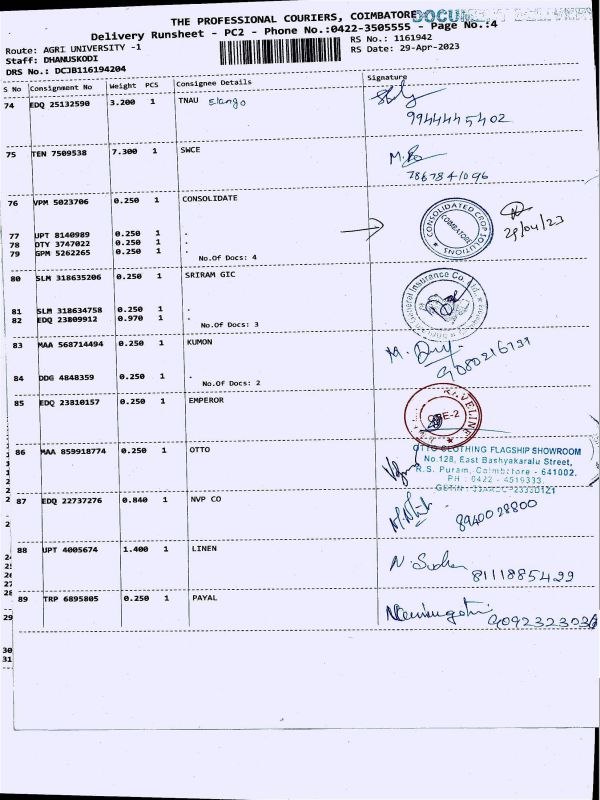 THE PROFESSIONAL COURIERS, COIMBATORE
Delivery Runsheet - PC2 - Phone No.:0422-3505555 - Page No.:4
Route: AGRI UNIVERSITY -1
RS No.: 1161942
Staff: DHANUSKODI
RS Date: 29-Apr-2023
DRS No.: DCJB116194204
S No Consignment No Weight PCS Consignee Details Signature
74 EDQ 25132590 3.200 1 TNAU Elango
9944445402
75 TEN 7509538 7.300 1 SWCE
7867841096
76 VPM 5023706 0.250 1 CONSOLIDATE
CONSOLIDATED CROP SOLUTIONS
COIMBATORE
29/04/23
77 UPT 8140989 0.250 1 .
78 DTY 3747022 0.250 1 .
79 GPM 5262265 0.250 1 .
No.Of Docs: 4
80 SLM 318635206 0.250 1 SRIRAM GIC
General Insurance Co. Ltd.
81 SLM 318634758 0.250 1 .
82 EDQ 23809912 0.970 1 .
No.Of Docs: 3
83 MAA 568714494 0.250 1 KUMON
84 DDG 4848359 0.250 1 .
No.Of Docs: 2
85 EDQ 23810157 0.250 1 EMPEROR
86 MAA 859918774 0.250 1 OTTO
OTTO CLOTHING FLAGSHIP SHOWROOM
No.128, East Bashyakaralu Street,
R.S. Puram, Coimbatore - 641002.
PH : 0422 - 4519333
87 EDQ 22737276 0.840 1 NVP CO
8940028800
88 UPT 4005674 1.400 1 LINEN
8111885499
89 TRP 6895805 0.250 1 PAYAL
30
31